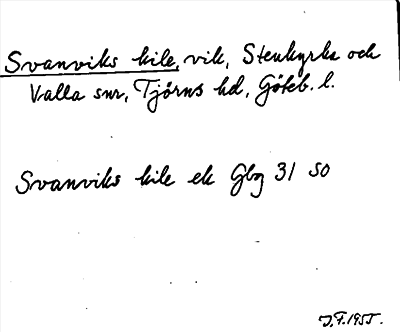 Svanviks kile, vik, Stenkyrka och
Valla snr, Tjörns hd, Göteb. l.
Svanviks kile ek Gbg 31 SO
J.F. 1955.